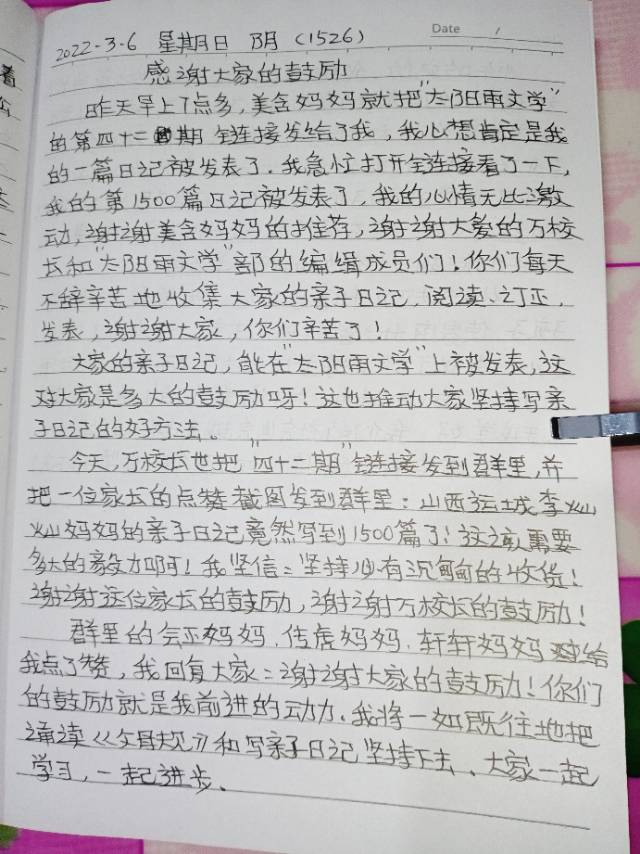 2022-3-6 星期日 阴 (1526)
Date /
感谢大家的鼓励
昨天早上7点多,美含妈妈就把"太阳雨文学"
的第四十二期链接发给了我,我心想肯定是我
的一篇日记被发表了.我急忙打开链接看了一下,
我的第1500篇日记被发表了,我的心情无比激
动,谢谢美含妈妈的推荐,谢谢大爱的万校
长和"太阳雨文学"部的编缉成员们!你们每天
不辞辛苦地收集大家的亲子日记,阅读、订正,
发表,谢谢大家,你们辛苦了!
大家的亲子日记,能在"太阳雨文学"上被发表,这
对大家是多大的鼓励呀!这也推动大家坚持写亲
子日记的好方法。
今天,万校长也把"四十二期"链接发到群里,并
把一位家长的点赞截图发到群里:山西运城李灿
灿妈妈的亲子日记竟然写到1500篇了!这该需要
多大的毅力啊!我坚信:坚持必有沉甸甸的收货!
谢谢这位家长的鼓励,谢谢万校长的鼓励!
群里的妈妈.佳虎妈妈.轩轩妈妈都给
我点了赞,我回复大家:谢谢大家的鼓励!你们
的鼓励就是我前进的动力.我将一如既往地把
诵读《父母规》和写亲子日记坚持下去、大家一起
学习,一起进步、